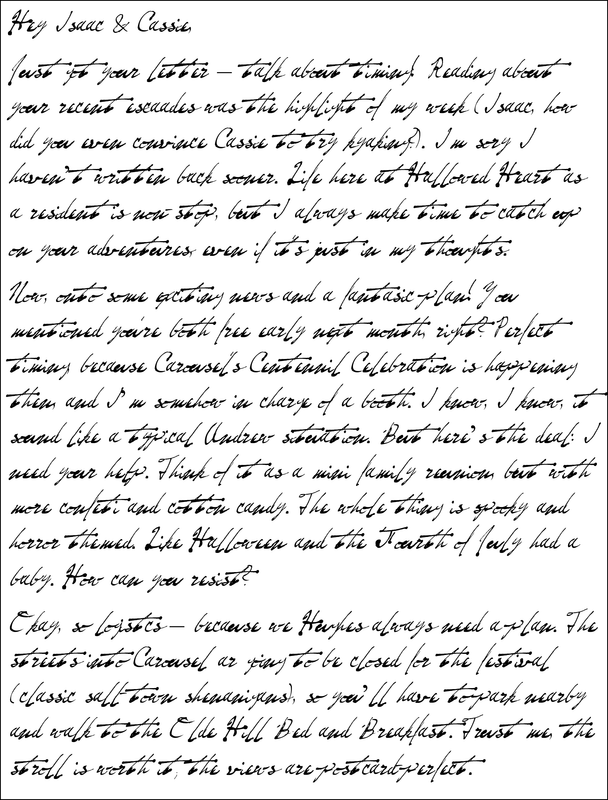 Hey Isaac & Cassie,
Just got your letter – talk about timing! Reading about
your recent escapades was the highlight of my week (Isaac, how
did you even convince Cassie to try kyaking?). I'm sory I
haven't written back sooner. Life here at Hallowed Heart as
a resident is non-stop, but I always make time to catch up
on your adventures, even if it's just in my thoughts.
Now, onto some exciting news and a fantasic plan! You
mentioned you're both free early next month, right? Perfect
timing because Carousel's Centennil Celebration is happening
then, and I'm somehow in charge of a booth. I know, I know, it
sound like a typical Andrew situation. But here's the deal: I
need your help. Think of it as a mini family reunion, but with
more confeti and cotton candy. The whole thing is spooky and
horror themed. Like Halloween and the Fourth of July had a
baby. How can you resist?
Okay, so logistcs – because we Hughes always need a plan. The
streets into Carousel ar going to be closed for the festival
(classic sall town shenanigans), so you'll have to park nearby
and walk to the Olde Hill Bed and Breakfast. Trust me, the
stroll is worth it; the views are postcard-perfect.